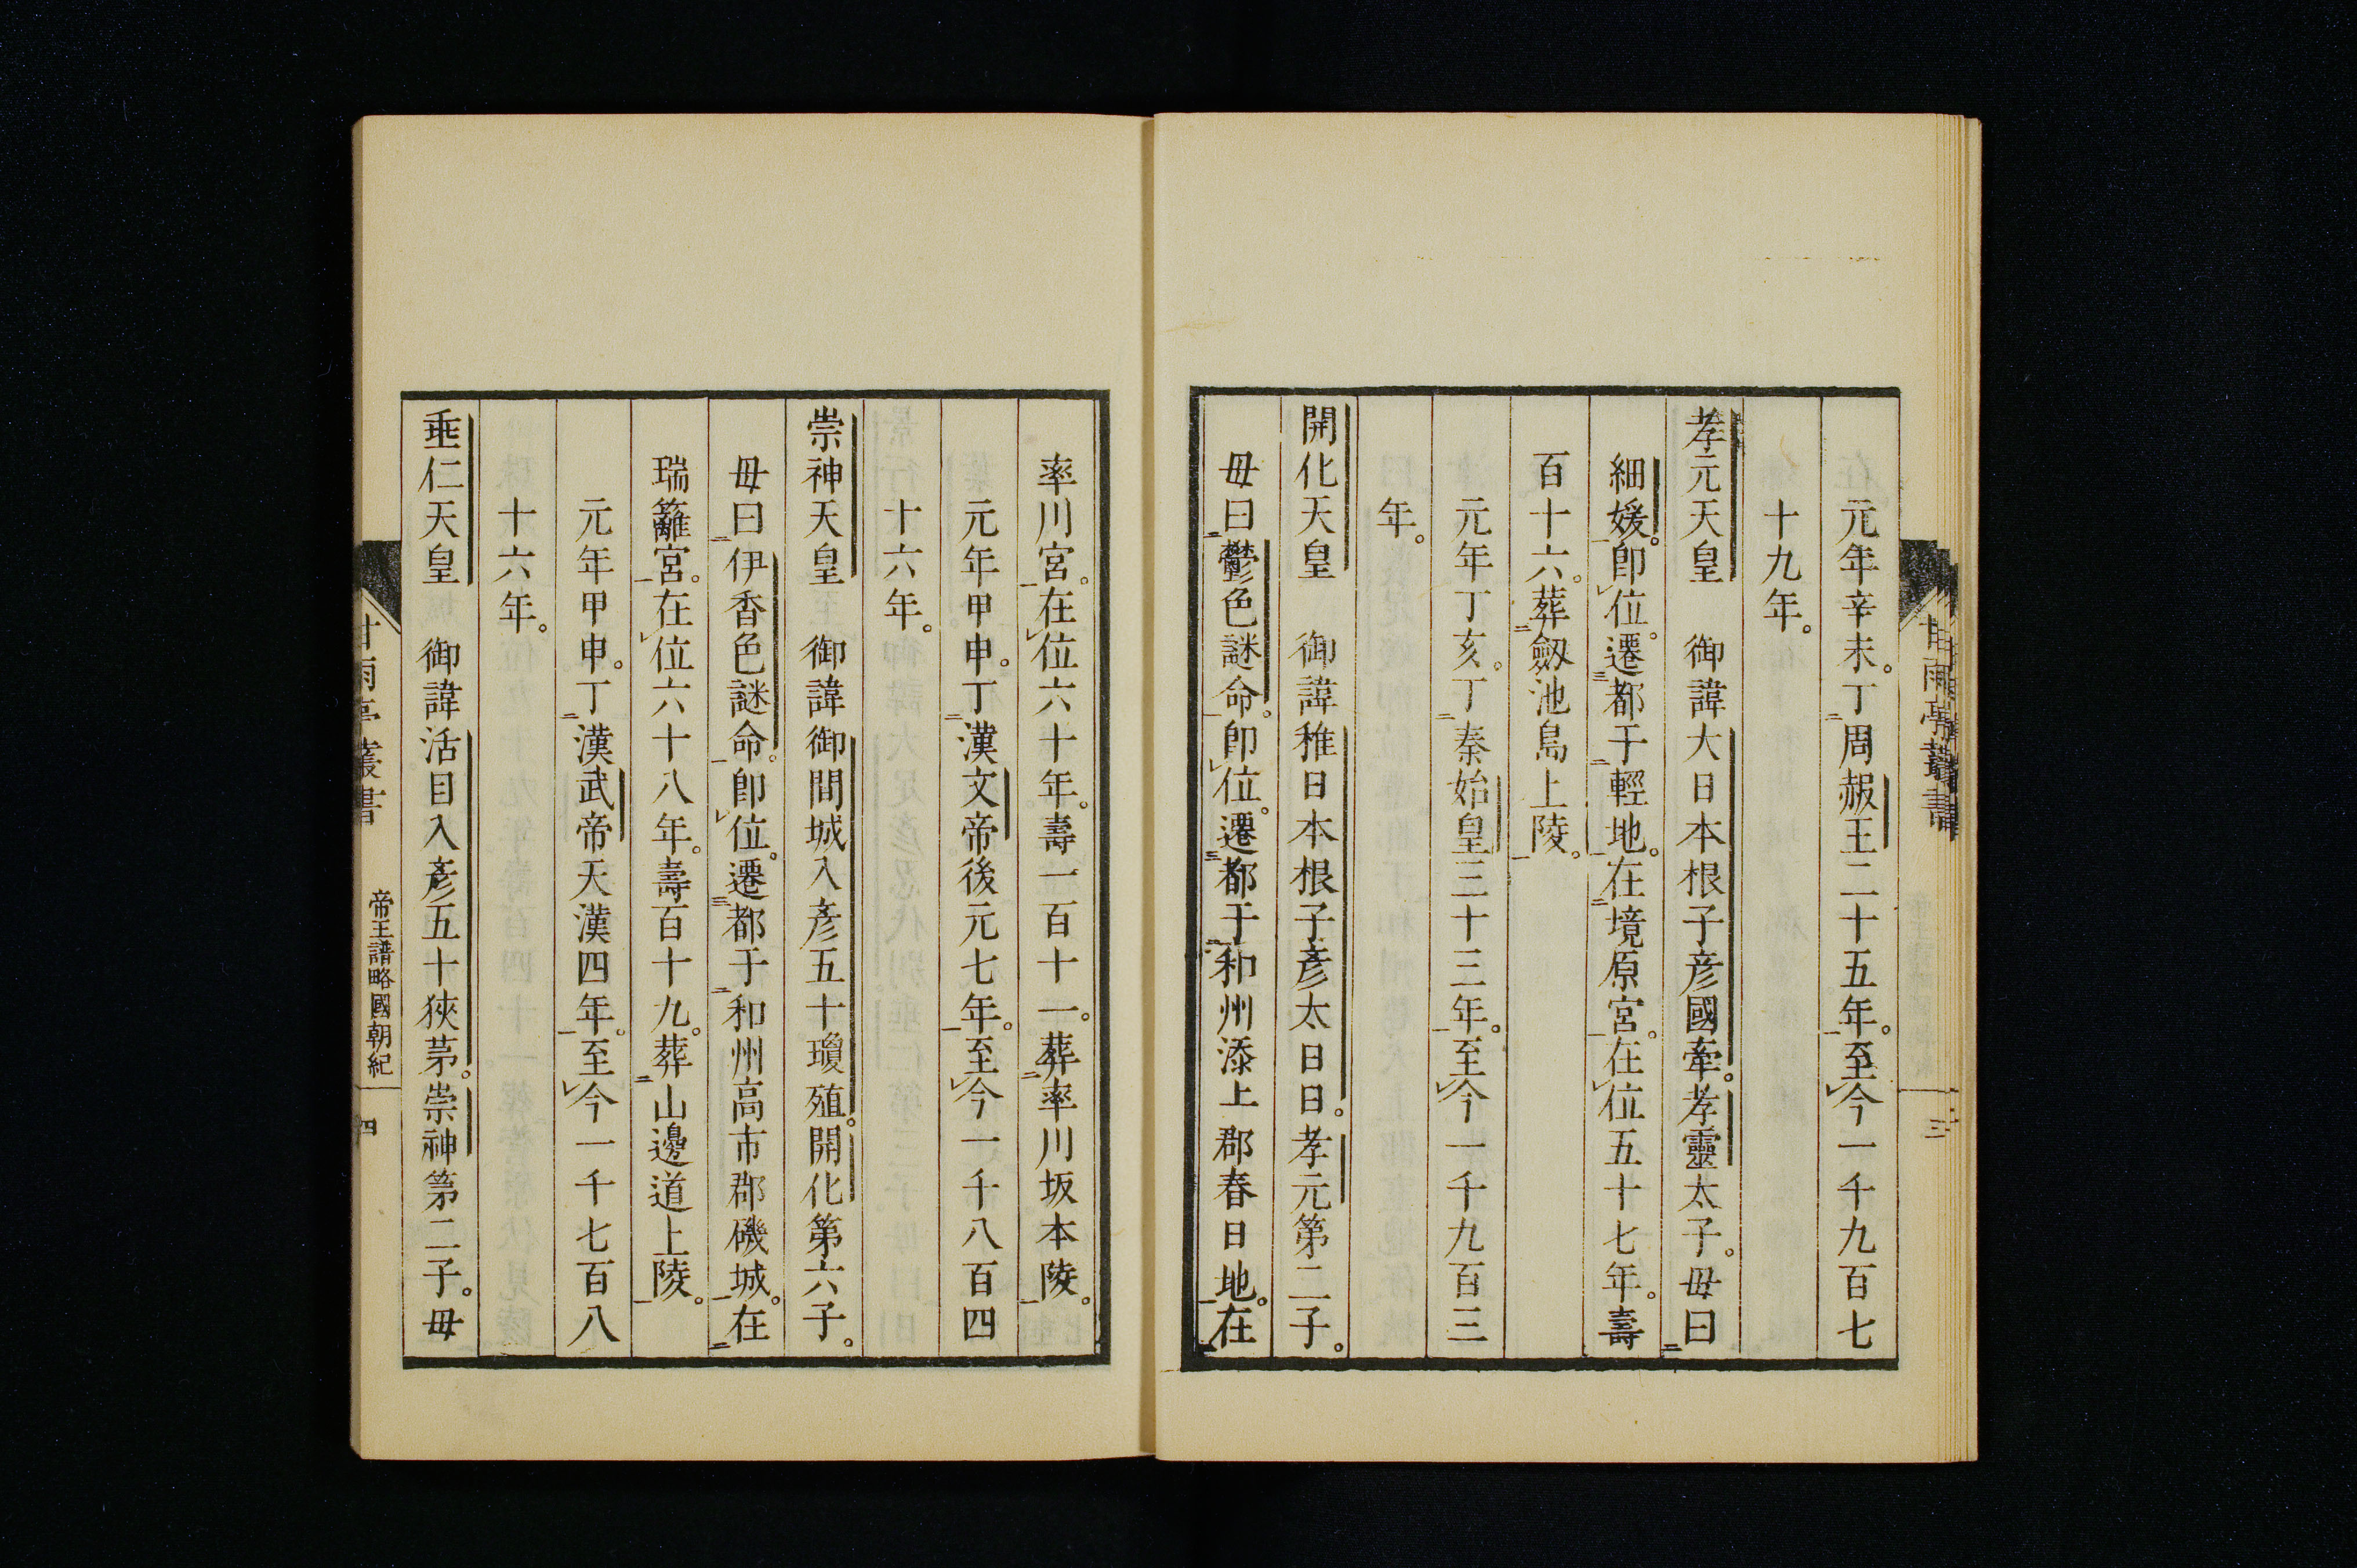 元年辛未。丁周赧王二十五年。至今一千九百七
十九年。
孝元天皇　御諱大日本根子彦國牽。孝靈太子。母曰
細媛。卽位。遷都于輕地。在境原宮。在位五十七年。壽
百十六。葬劔池島上陵。
元年丁亥。丁秦始皇三十三年。至今一千九百三
年。
開化天皇　御諱稚日本根子彦太日日。孝元第二子。
母曰鬱色謎命。卽位。遷都于和州添上郡春日地。在
率川宮。在位六十年。壽一百十一。葬率川坂本陵。
元年甲申。丁漢文帝後元七年。至今一千八百四
十六年。
崇神天皇　御諱御間城入彦五十瓊殖。開化第六子。
母曰伊香色謎命。卽位。遷都于和州高市郡磯城。在
瑞籬宮。在位六十八年。壽百十九。葬山邊道上陵。
元年甲申。丁漢武帝天漢四年。至今一千七百八
十六年。
垂仁天皇　御諱活目入彦五十狹茅。崇神第二子。母
甘雨亭叢書
三
甘雨亭叢書　帝王譜略國朝紀　四